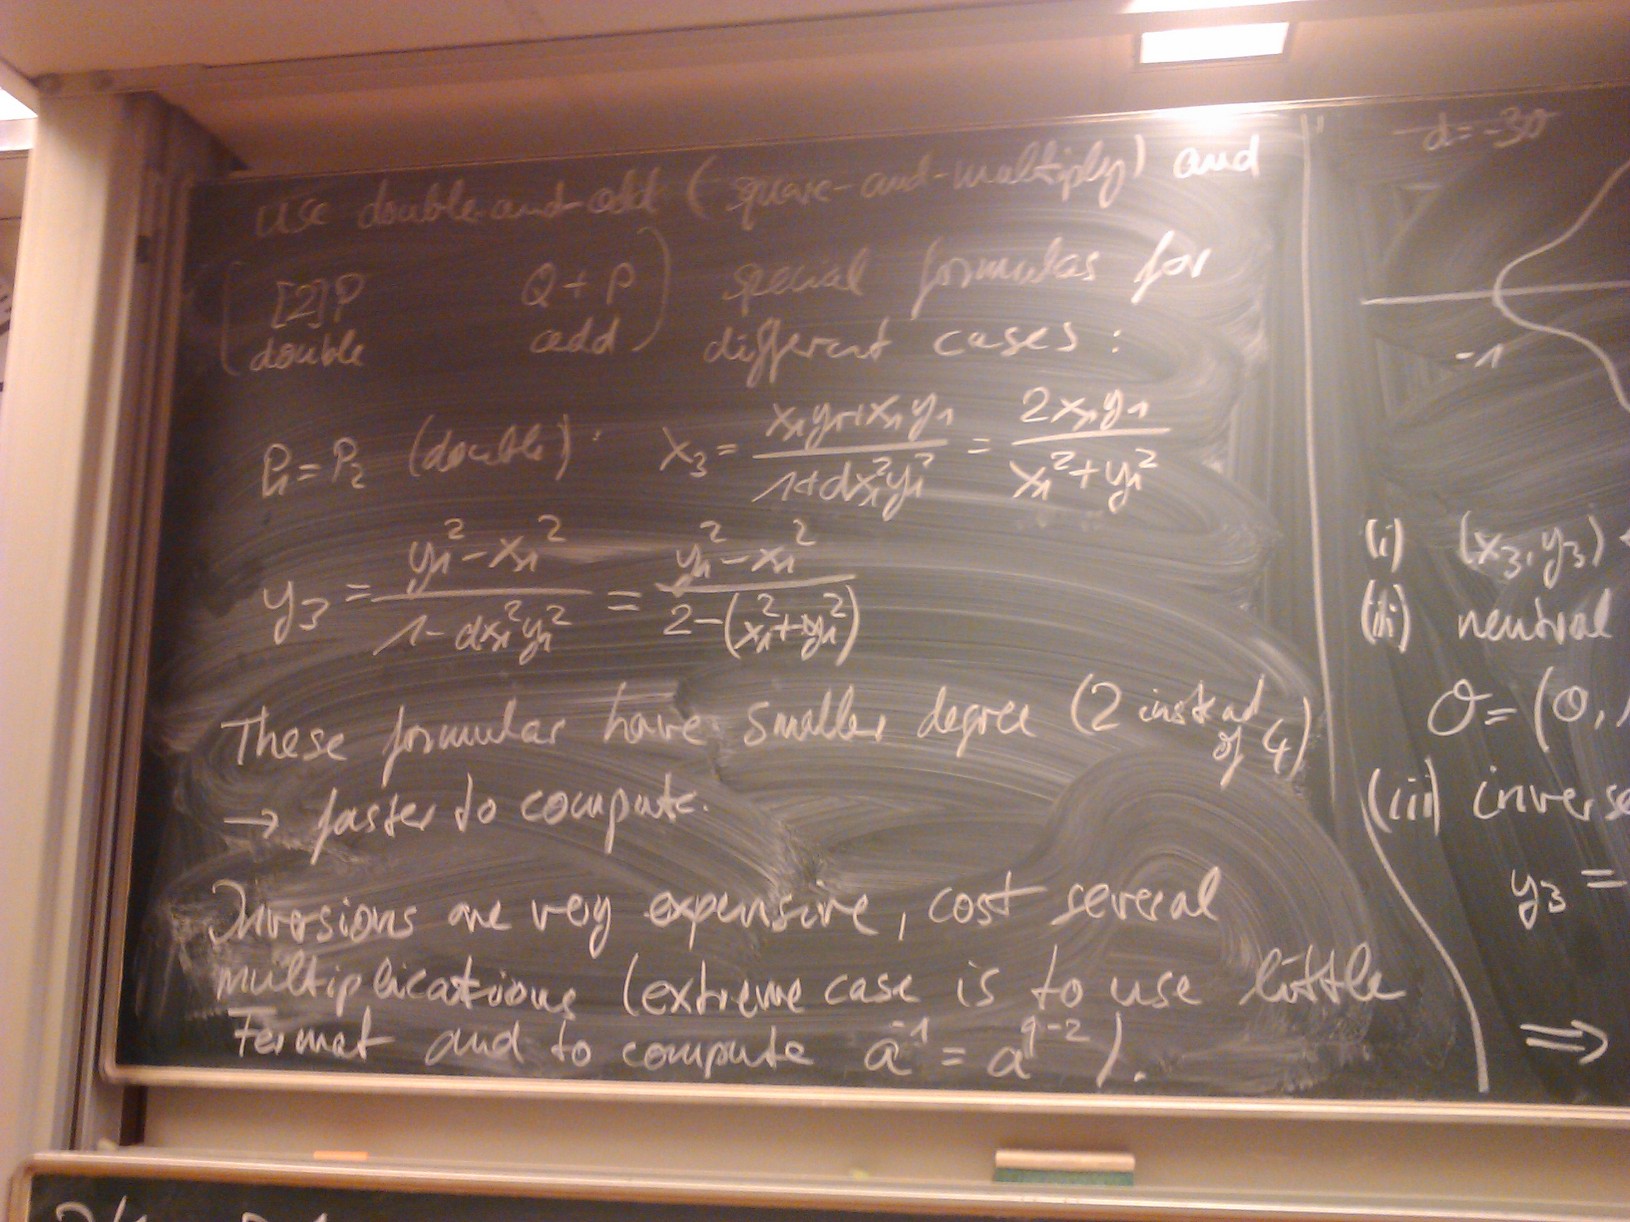 use double-and-add (square-and-multiply) and
( [2]P Q + P ) special formulas for
double add different cases :
P₁ = P₂ (double) : x₃ = (x₁y₁+x₁y₁)/(1+dx₁²y₁²) = (2x₁y₁)/(x₁²+y₁²)
y₃ = (y₁²-x₁²)/(1-dx₁²y₁²) = (y₁²-x₁²)/(2-(x₁²+y₁²))
These formulas have smaller degree (2 instead of 4)
→ faster to compute.
Inversions are very expensive, cost several
multiplications (extreme case is to use little
Fermat and to compute a⁻¹ = a^(q-2) ).
d=-30
-1
(i) (x₃,y₃)
(ii) neutral
O = (0,
(iii) inverse
y₃ =
⇒